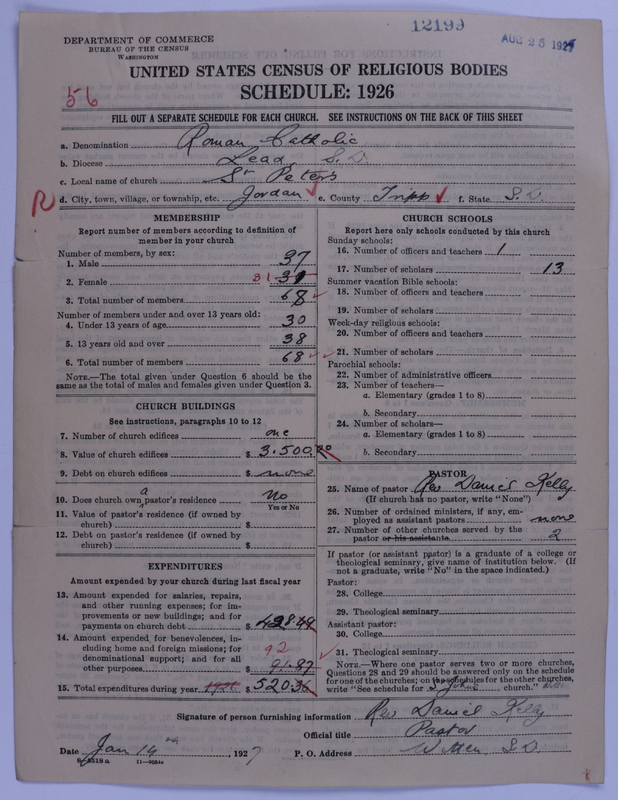 12199
AUG 25 1927
DEPARTMENT OF COMMERCE
BUREAU OF THE CENSUS
WASHINGTON
UNITED STATES CENSUS OF RELIGIOUS BODIES
SCHEDULE: 1926
56
FILL OUT A SEPARATE SCHEDULE FOR EACH CHURCH. SEE INSTRUCTIONS ON THE BACK OF THIS SHEET
a. Denomination Roman Catholic
b. Diocese Lead S. D.
c. Local name of church St Peters
R d. City, town, village, or township, etc. Jordan e. County Tripp f. State S. D.
MEMBERSHIP
Report number of members according to definition of
member in your church
Number of members, by sex:
1. Male 37
2. Female 31 31
3. Total number of members 68
Number of members under and over 13 years old:
4. Under 13 years of age 30
5. 13 years old and over 38
6. Total number of members 68
NOTE.—The total given under Question 6 should be the
same as the total of males and females given under Question 3.
CHURCH BUILDINGS
See instructions, paragraphs 10 to 12
7. Number of church edifices one
8. Value of church edifices $ 3.500.00
9. Debt on church edifices $ none
10. Does church own a pastor's residence No
Yes or No
11. Value of pastor's residence (if owned by
church) $
12. Debt on pastor's residence (if owned by
church) $
EXPENDITURES
Amount expended by your church during last fiscal year
13. Amount expended for salaries, repairs,
and other running expenses; for im-
provements or new buildings; and for
payments on church debt $ 428 49
14. Amount expended for benevolences, in-
cluding home and foreign missions; for
denominational support; and for all 92
other purposes $ 91.87
15. Total expenditures during year 1926 $ 520.36
CHURCH SCHOOLS
Report here only schools conducted by this church
Sunday schools:
16. Number of officers and teachers 1
17. Number of scholars 13
Summer vacation Bible schools:
18. Number of officers and teachers
19. Number of scholars
Week-day religious schools:
20. Number of officers and teachers
21. Number of scholars
Parochial schools:
22. Number of administrative officers
23. Number of teachers—
a. Elementary (grades 1 to 8)
b. Secondary
24. Number of scholars—
a. Elementary (grades 1 to 8)
b. Secondary
PASTOR
25. Name of pastor Rev Daniel Kelly
(If church has no pastor, write "None")
26. Number of ordained ministers, if any, em-
ployed as assistant pastors none
27. Number of other churches served by the
pastor or his assistants 2
If pastor (or assistant pastor) is a graduate of a college or
theological seminary, give name of institution below. (If
not a graduate, write "No" in the space indicated.)
Pastor:
28. College
29. Theological seminary
Assistant pastor:
30. College
31. Theological seminary
NOTE.—Where one pastor serves two or more churches,
Questions 28 and 29 should be answered only on the schedule
for one of the churches; on the schedules for the other churches,
write "See schedule for S Johns church."
Signature of person furnishing information Rev Daniel Kelly
Official title Pastor
Date Jan 14, 1927 P. O. Address Witten S. D.
11—9084a